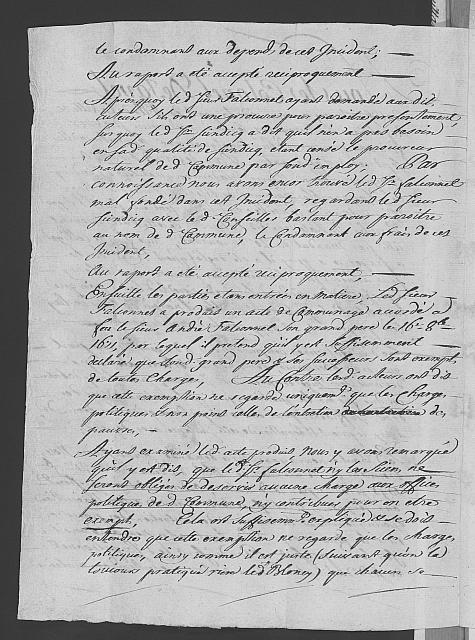 le condamnant aux depends de cet Incident;
Au raport a été accepté reciproquement
Aprèsquoy led. sieur Falconnet ayant demandé auxdits
acteurs s'ils ont une procure pour paroitre presentement,
surquoy led. Sr. Sindicq a dit qu'il n'en a pas besoin
en sad. qualité de Sindicq etant censé le procureur
naturel de d. Commune par sond. employ; Par
connoissance nous avons encor trouvé led. Sr. Falconnet
mal fondé dans cet Incident, regardans led. sieur
Sindicq avec led. Conseiller bastant pour paroitre
au nom de d. Commune, le Condamnant aux frais de cet
Incident,
Au raport a été accepté reciproquement,
Ensuitte les parties etans entrées en matière, Led. sieur
Falconnet a produit un acte de Communage accordé a
feu le sieur André Falconnet son grand pere le 16e 8bre
1671, par lequel il pretend qu'il y est suffisamment
declaré que sond. grand pere & ses successeurs sont exempt
de toutes Charges, Au Contre lesd. acteurs ont dit
que cette exemption ne regarde uniquemt. que les Charges
politiques & non point celles de l'entretien de
pauvres,
Ayans examiné led. acte produit Nous y avons remarqué
qu'il y est dit, que led. Sr. Falconnet n'y les siens, ne
seront obligés de desservir aucune charge aux offices
politiques de d. Commune, n'y contribuer pour en etre
exempt, Cela est suffisemmt. expliqué & se doit
entendre que cette exemption ne regarde que les charges
politiques, ainsy comme il est juste (suivant qu'on l'a
toujours pratiqué riere led. Blonay) que chacun se